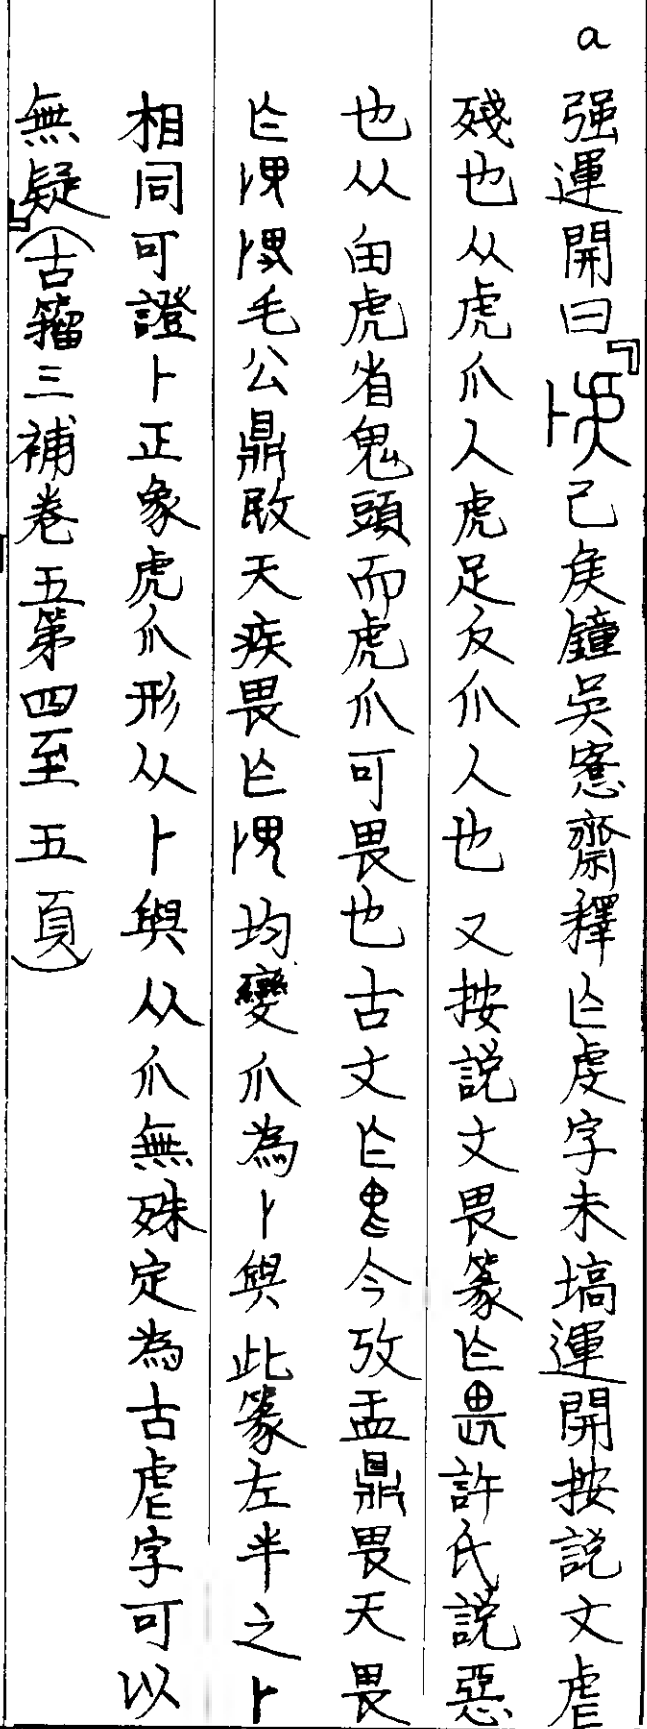 a
强運開曰『己矦鐘吳愙齋釋亾虔字未塙運開按説文虐
殘也从虎爪人虎足反爪人也又按説文畏篆亾許氏説惡
也从甶虎省鬼頭而虎爪可畏也古文亾今攷盂鼎畏天畏
亾毛公鼎敃天疾畏亾均變爪為卜與此篆左半之卜
相同可證卜正象虎爪形从卜與从爪無殊定為古虐字可以
無疑』(古籀三補卷五第四至五頁)